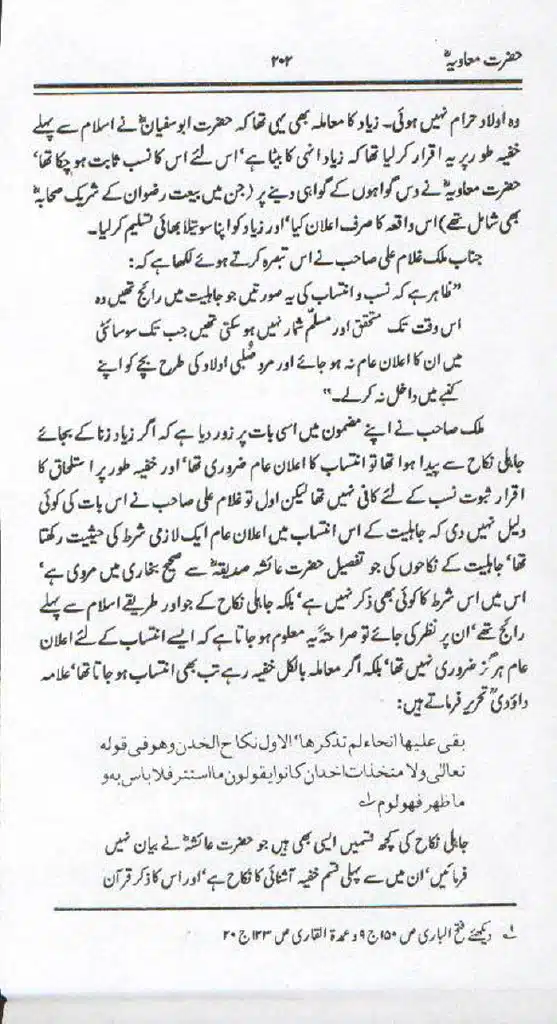 حضرت معاویہؓ ۲۰۲
وہ اولاد حرام نہیں ہوئی۔ زیاد کا معاملہ بھی یہی تھا کہ حضرت ابوسفیانؓ نے اسلام سے پہلے
خفیہ طور پر یہ اقرار کرلیا تھا کہ زیاد انہی کا بیٹا ہے‘ اس لئے اس کا نسب ثابت ہو چکا تھا‘
حضرت معاویہؓ نے دس گواہوں کے گواہی دینے پر (جن میں بیعت رضوان کے شریک صحابہؓ
بھی شامل تھے) اس واقعہ کا صرف اعلان کیا‘ اور زیاد کو اپنا سوتیلا بھائی تسلیم کرلیا۔
جناب ملک غلام علی صاحب نے اس تبصرہ کرتے ہوئے لکھا ہے کہ:
”ظاہر ہے کہ نسب و انتساب کی یہ صورتیں جو جاہلیت میں رائج تھیں وہ
اس وقت تک متحقق اور مسلّم شمار نہیں ہو سکتی تھیں جب تک سوسائٹی
میں ان کا اعلان عام نہ ہو جائے اور مرد صُلبی اولاد کی طرح بچے کو اپنے
کنبے میں داخل نہ کرلے۔“
ملک صاحب نے اپنے مضمون میں اسی بات پر زور دیا ہے کہ اگر زیاد زنا کے بجائے
جاہلی نکاح سے پیدا ہوا تھا تو انتساب کا اعلان عام ضروری تھا‘ اور خفیہ طور پر استلحاق کا
اقرار ثبوت نسب کے لئے کافی نہیں تھا لیکن اول تو غلام علی صاحب نے اس بات کی کوئی
دلیل نہیں دی کہ جاہلیت کے اس انتساب میں اعلان عام ایک لازمی شرط کی حیثیت رکھتا
تھا‘ جاہلیت کے نکاحوں کی جو تفصیل حضرت عائشہ صدیقہؓ سے صحیح بخاری میں مروی ہے‘
اس میں اس شرط کا کوئی بھی ذکر نہیں ہے‘ بلکہ جاہلی نکاح کے جو اور طریقے اسلام سے پہلے
رائج تھے‘ ان پر نظر کی جائے تو صراحتًہ یہ معلوم ہو جاتا ہے کہ ایسے انتساب کے لئے اعلان
عام ہرگز ضروری نہیں تھا‘ بلکہ اگر معاملہ بالکل خفیہ رہے تب بھی انتساب ہو جاتا تھا‘ علامہ
داؤدیؒ تحریر فرماتے ہیں:
بقی علیھا انحاء لم تذکرھا‘ الاول نکاح الخدن وھو فی قولہ
تعالٰی ولا متخذات اخدان کانوا یقولون ما استتر فلا باس بہ و
ما ظھر فھو لوم ۱؎
جاہلی نکاح کی کچھ قسمیں ایسی بھی ہیں جو حضرت عائشہؓ نے بیان نہیں
فرمائیں‘ ان میں سے پہلی قسم خفیہ آشنائی کا نکاح ہے‘ اور اس کا ذکر قرآن
۱؎ دیکھئے فتح الباری ص ۱۵۰ ج ۹ و عمدۃ القاری ص ۱۲۳ ج ۲۰